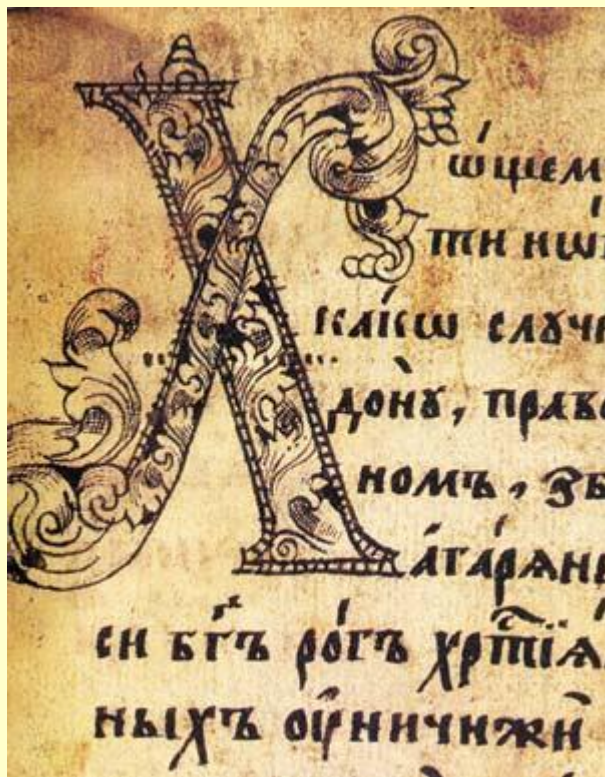 Хѡ́щем
ти нѡ
ка́кѡ слꙋчи
до́нꙋ, право
номъ, зб
ага́рѧни
си бг҃ъ ро́гъ хрⷭ҇тїѧ
ныхъ оу҆ничижѝ